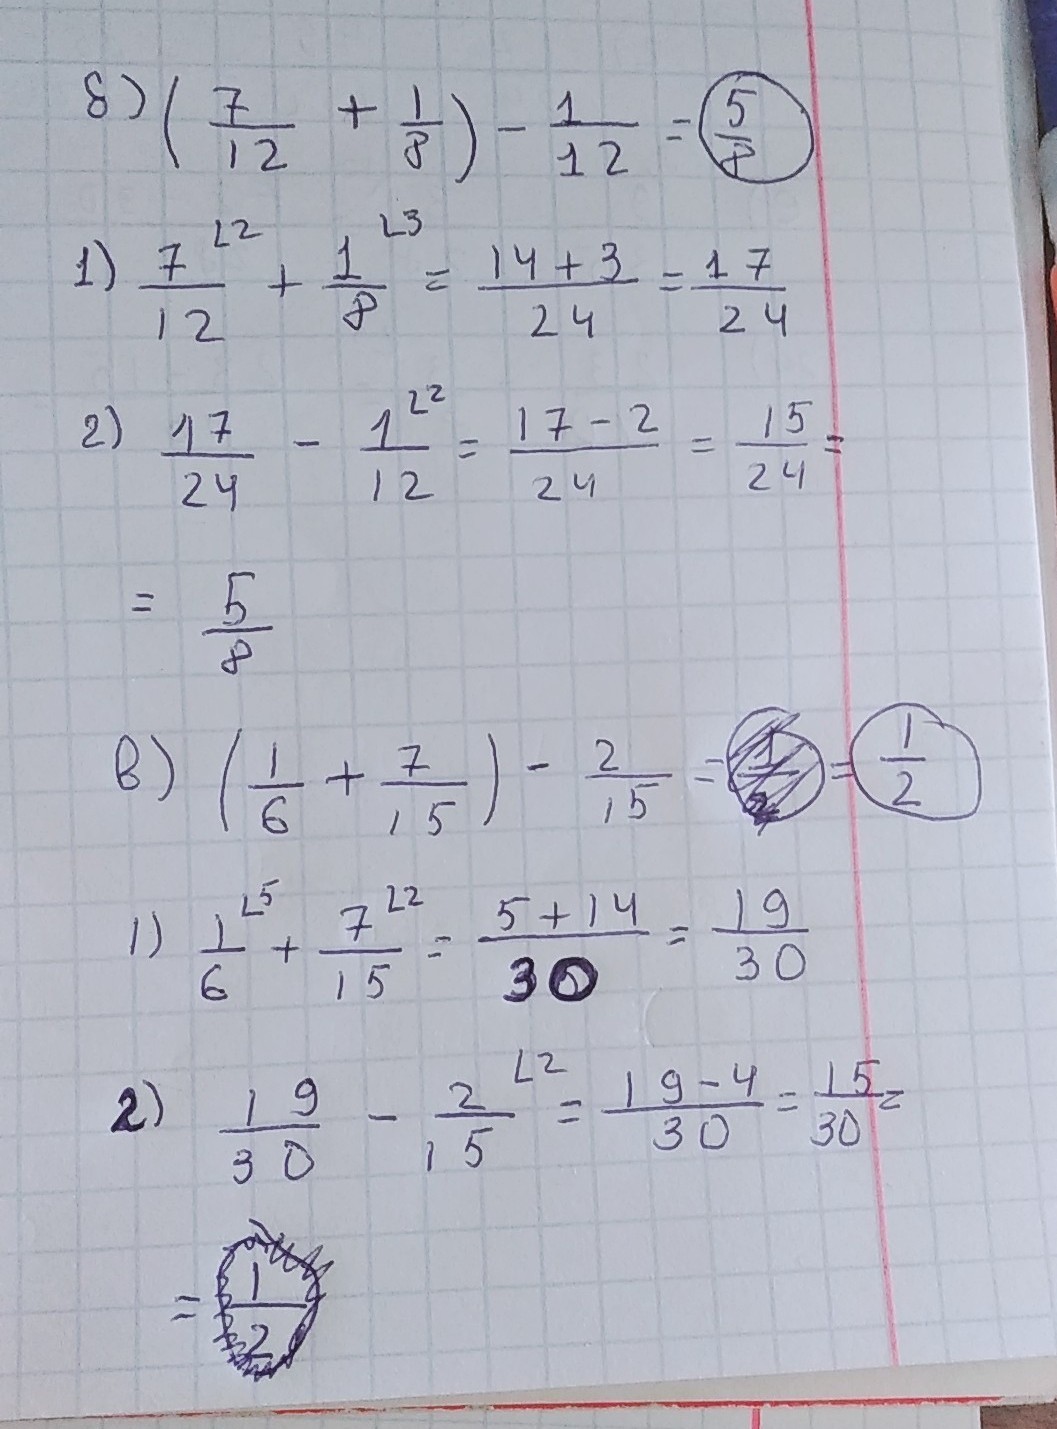 б) (7/12 + 1/8) - 1/12 = 5/8
1) 7/12 ∟2 + 1/8 ∟3 = 14+3/24 = 17/24
2) 17/24 - 1/12 ∟2 = 17-2/24 = 15/24 =
= 5/8
в) (1/6 + 7/15) - 2/15 = = 1/2
1) 1/6 ∟5 + 7/15 ∟2 = 5+14/30 = 19/30
2) 19/30 - 2/15 ∟2 = 19-4/30 = 15/30 =
= 1/2